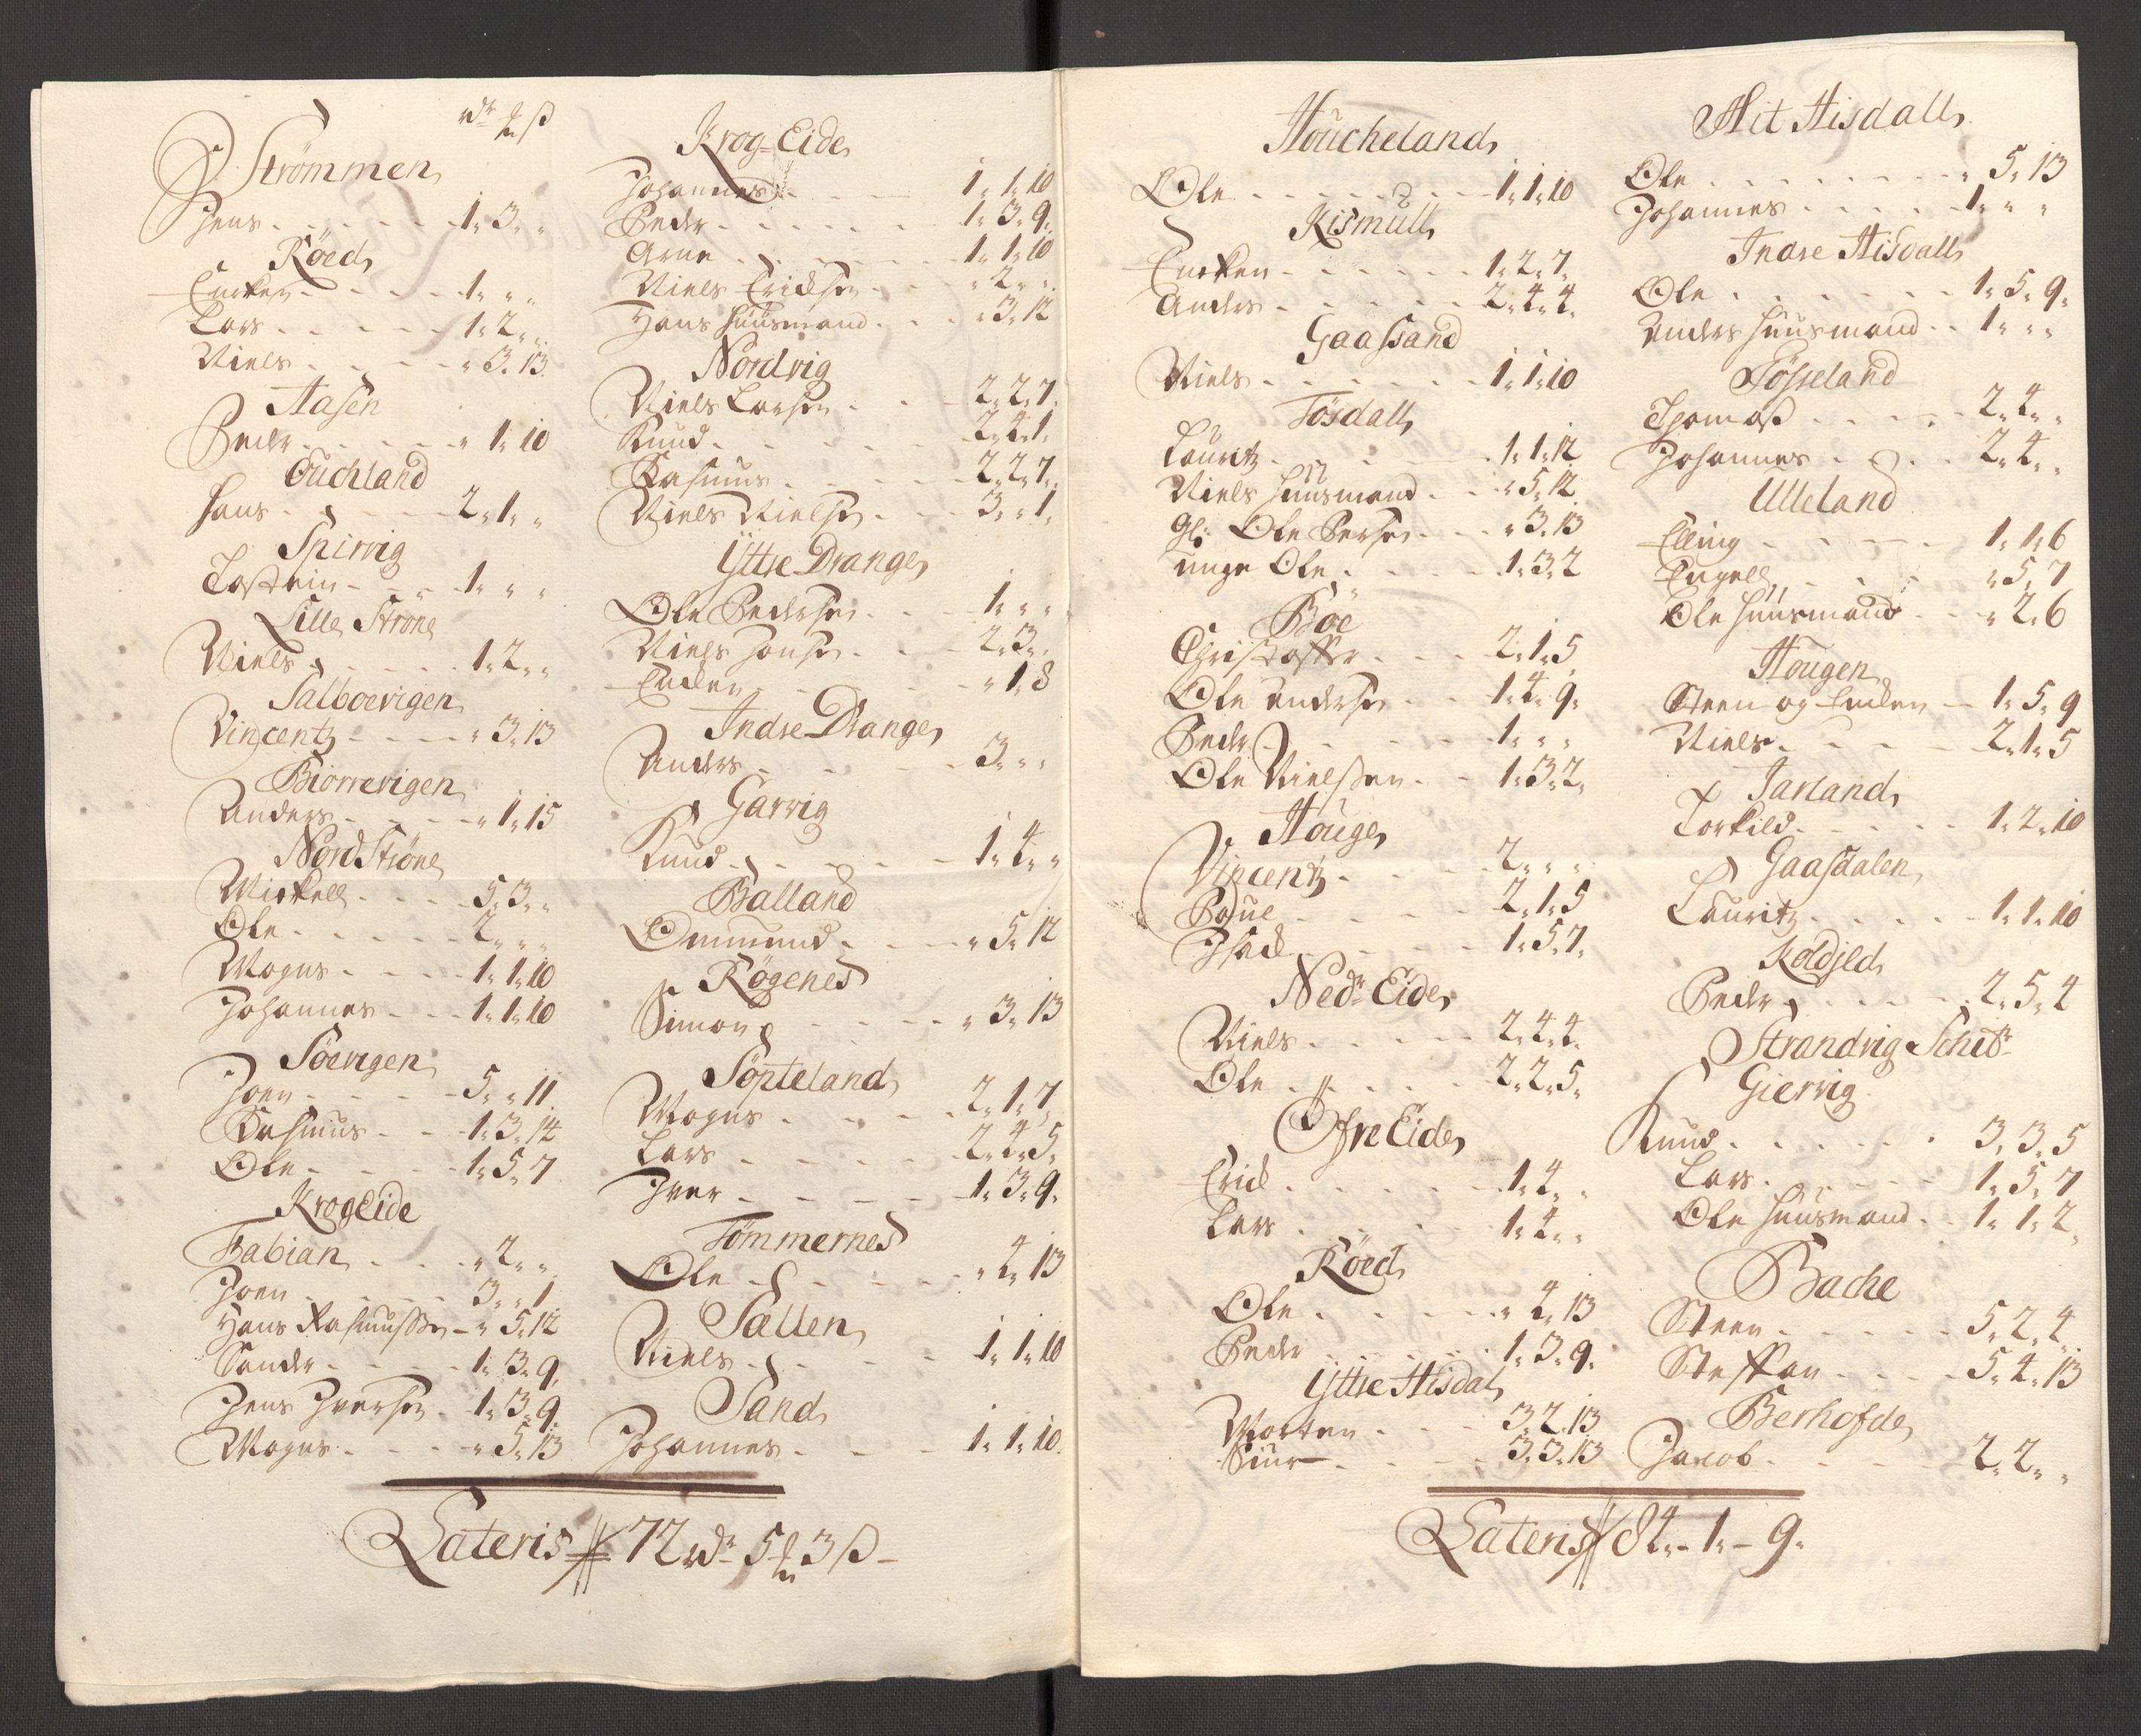 Strömmen
Jens 1. 3. "
Röed
Lars 1. 2. "
Niels " 3. 13
Aasen
Peder " 1. 10
Ouchland
Hans 2. 1. "
Spirvig
Tostein 1. " "
Lille Strone
Niels 1. 2. "
Salboevigen
Vincentz " 3. 13
Biörnevigen
Anders " 1. 15
Nord Ströne
Mickell 5. 3. "
Ole 2. " "
Mogns 1. 1. 10
Johannes 1. 1. 10
Söevigen
Joen 5. " 11
Rasmus 1. 3. 14
Ole 1. 5. 7
Krogeide
Fabian " 2. "
Joen 3. " 1
Hans Rasmussen " 5. 12
Sander 1. 3. 9
Jens Iversen 1. 3. 9
Mogns " 5. 13
Krog-Eide
Johannes 1. 1. 10
Peder 1. 3. 9
Arne 1. 1. 10
Niels Erichsen " 2. "
Hans Huusmand " 3. 12
Nordvig
Niels Larsen 2. 2. 7
Knud 2. 4. 1
Rasmus 2. 2. 7
Niels Nielsen 3. " 1
Yttre Drange
Ole Pedersen 1. " "
Niels Hansen 2. 3. "
Enken " 1. 8
Indre Drange
Anders 3. " "
Garvig
Knud 1. 4. "
Balland
Ommund " 5. 12
Rögenes
Simon " 3. 13
Söpteland
Mogns 2. 1. 7
Lars 2. 4. 5
Iver 1. 3. 9
Tömmernes
Ole " 4. 13
Sællen
Niels 1. 1. 10
Sand
Johannes 1. 1. 10
Lateris 72 rdr 5 3 ß
Houcheland
Ole 1. 1. 10
Kismull
Enken 1. 2. 7
Anders 2. 4. 4
Gaassand
Niels 1. 1. 10
Tösdall
Lauritz 1. 1. 12
Niels Huusmand " 5. 12
Gl: Ole Persen " 3. 13
unge Ole 1. 3. 2
Böe
Christoffer 2. 1. 5
Ole Andersen 1. 4. 9
Peder 1. " "
Ole Nielssen 1. 3. 2
Houge
Vincentz 2. " "
Poul 2. 1. 5
Isack 1. 5. 7
Nedr Eide
Niels 2. 4. 4
Ole 2. 2. 5
Ofre Eide
Erick 1. 4. "
Lars 1. 4. "
Röed
Ole " 4. 13
Peder 1. 3. 9
Yttre Hisdal
Morten 3. 2. 13
Siur 3. 3. 13
Mit Hisdall
Ole " 5. 13
Johannes 1. " "
Indre Hisdall
Ole 1. 5. 9
Anders Huusmand 1. " "
Tösseland
Thomas 2. 4. "
Johannes 2. 4. "
Ulleland
Elling 1. 1. 6
Engell " 5. 7
Ole Huusmand " 2. 6
Hougen
Steen og Enken 1. 5. 9
Niels 2. 1. 5
Jarland
Torkild 1. 2. 10
Gaasdalen
Lauritz 1. 1. 10
Koldjeld
Peder 2. 5. 4
Strandvig Schibr
Giervig
Knud 3. 3. 5
Lars 1. 5. 7
Ole Huusmand 1. 1. 2
Bache
Steen 5. 2. 4
Steffen 5. 4. 13
Berhofde
Jacob 2. 2. "
Lateris 84. 1. 9